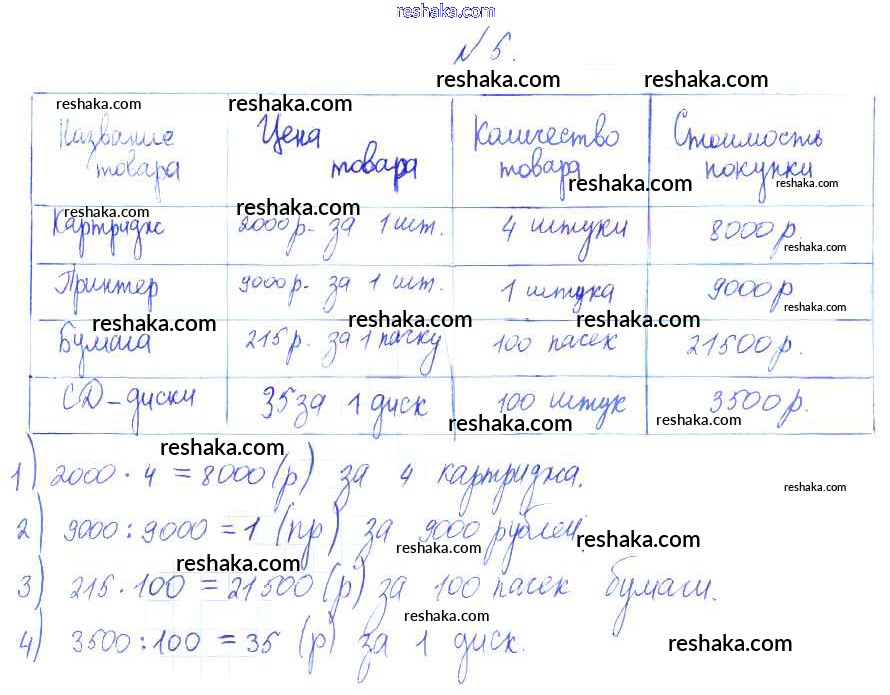 reshaka.com
№ 5.
reshaka.com reshaka.com
reshaka.com reshaka.com
Название Цена Количество Стоимость
товара товара товара покупки
reshaka.com reshaka.com
reshaka.com reshaka.com
Картридж 2000 р. за 1 шт. 4 штуки 8000 р.
reshaka.com
Принтер 9000 р. за 1 шт. 1 штука 9000 р
reshaka.com
reshaka.com reshaka.com reshaka.com
Бумага 215 р. за 1 пачку 100 пасек 21500 р.
CD-диски 35 за 1 диск 100 штук 3500 р.
reshaka.com reshaka.com
reshaka.com
1) 2000 · 4 = 8000 (р) за 4 картриджа.
reshaka.com
2) 9000 : 9000 = 1 (пр) за 9000 рублей.
reshaka.com reshaka.com
reshaka.com
3) 215 · 100 = 21500 (р) за 100 пасек бумаги.
reshaka.com
4) 3500 : 100 = 35 (р) за 1 диск.
reshaka.com